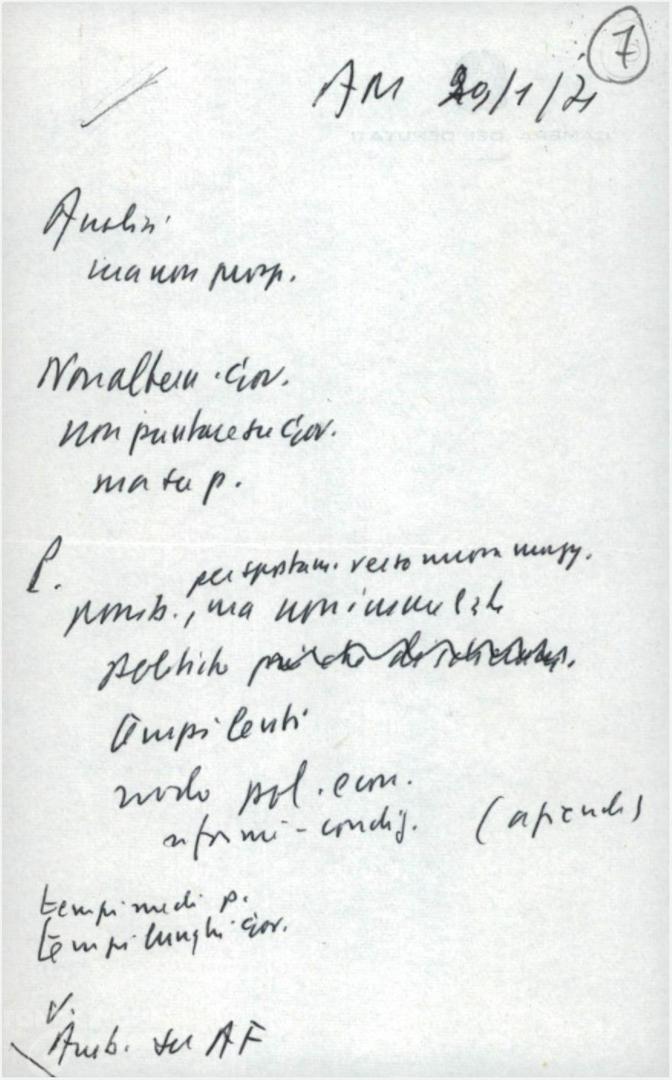 7
AM 29/1/71
CAMERA DEI DEPUTATI
Analisi
ma non prosp.
Non altern. Gov.
non puntare su Gov.
ma su p.
P.
per spostam. verso nuova magg.
possib., ma non immediate
politiche
tempi lenti
nodo pol. econ.
riforme - condiz. (aziende)
tempi medi p.
tempi lunghi Gov.
v.
Amb. su AF